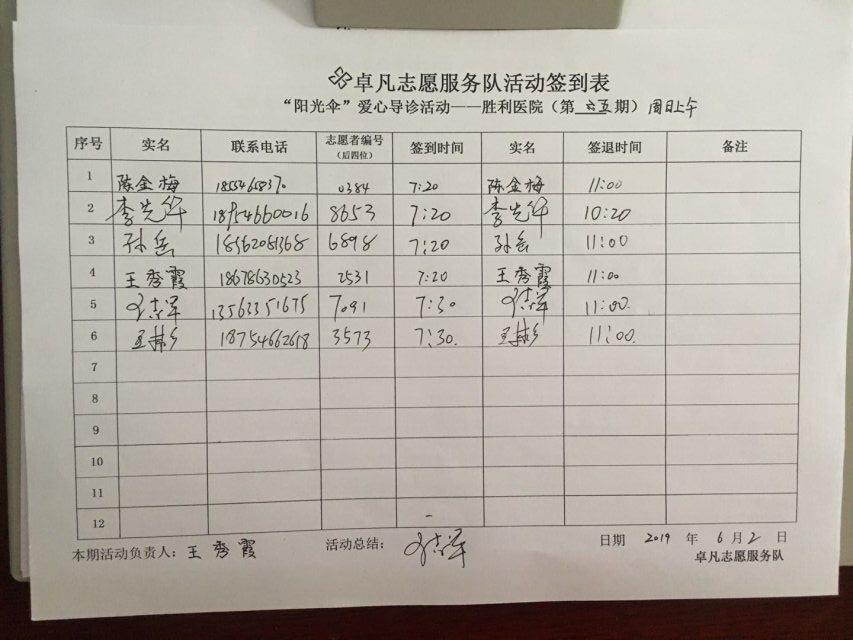 卓凡志愿服务队活动签到表
“阳光伞”爱心导诊活动——胜利医院（第 六五 期）周日上午
序号 实名 联系电话 志愿者编号（后四位） 签到时间 实名 签退时间 备注
1 陈金梅 0384 7:20 陈金梅 11:00
2 李先华 18954660016 8653 7:20 李先华 10:20
3 孙岳 18562081368 6898 7:20 孙岳 11:00
4 王秀霞 18678630523 2531 7:20 王秀霞 11:00
5 13563351675 7091 7:30 11:00
6 18754662618 3573 7:30. 11:00
7
8
9
10
11
12
本期活动负责人：王秀霞 活动总结： 日期 2019 年 6 月 2 日
卓凡志愿服务队